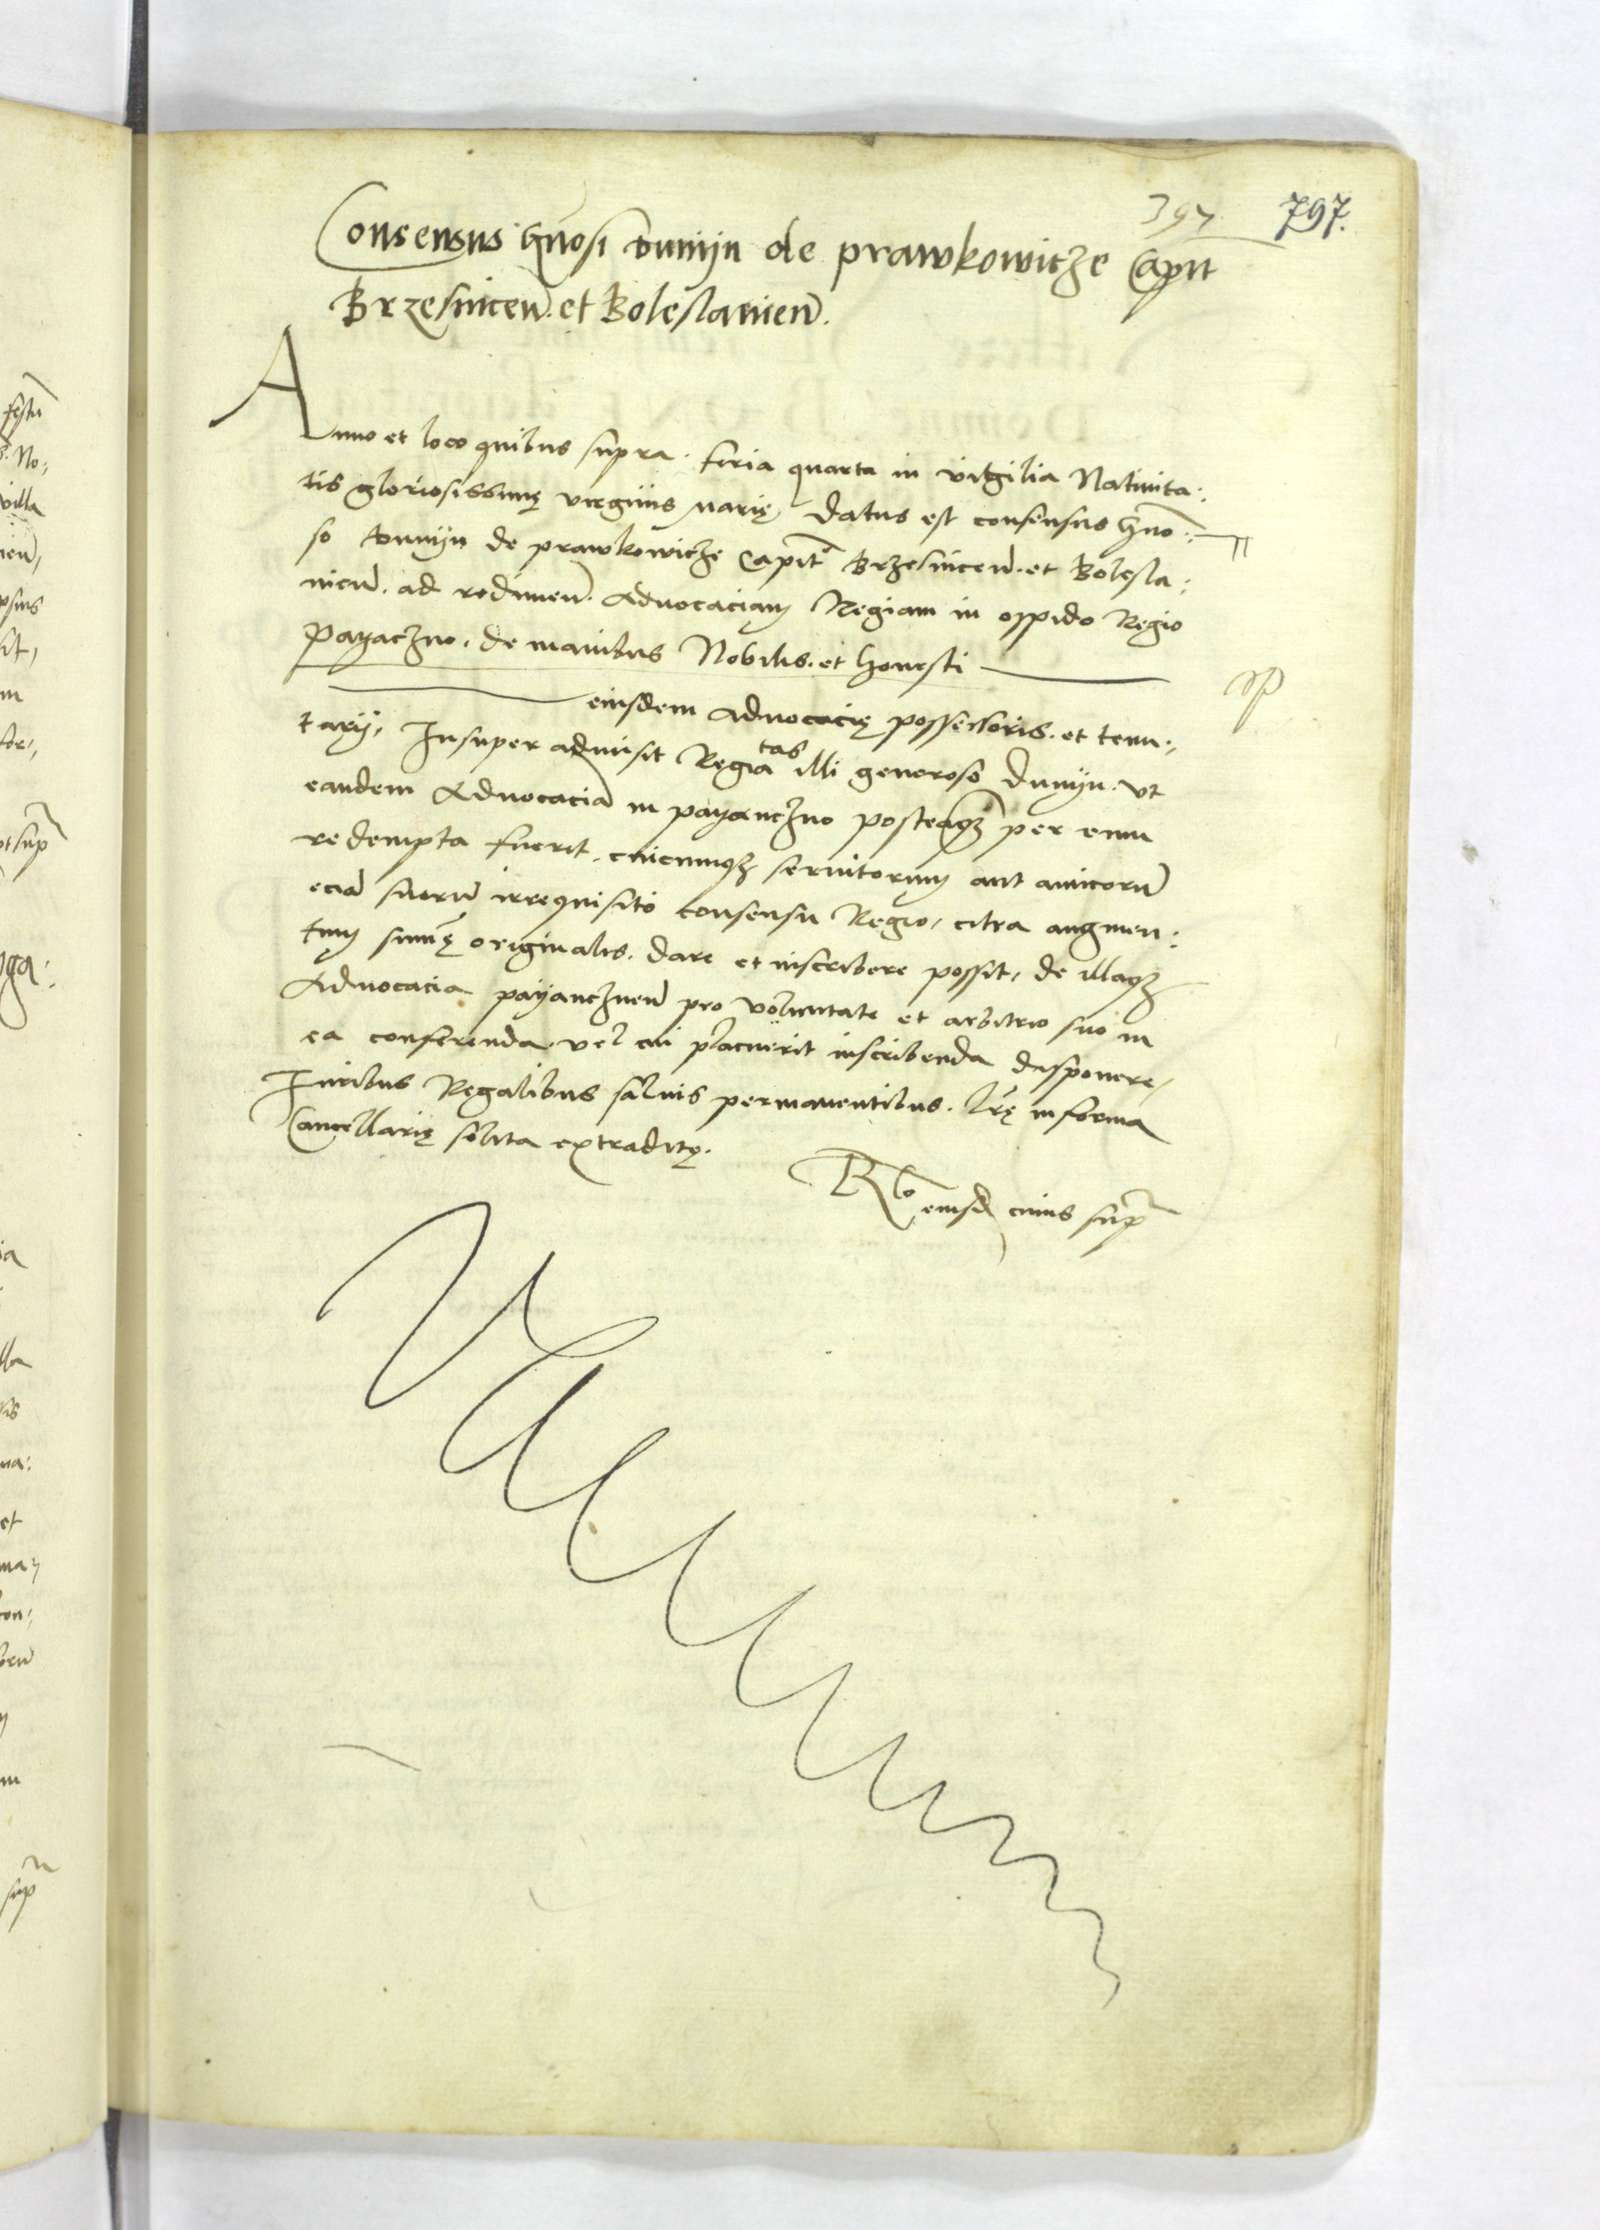 397 797.
Consensus gnosi Dunijn de prawkowicze Capit
Brzesnicen. et Boleslauien.
Anno et loco quibus supra. feria quarta in vigilia Natiuita:
tis gloriosissimę virginis Marię, datus est consensus gno:
so Dunijn de prawkowicze Capit Brzesnicen. et Bolesla:
nien. ad redimen. Aduocaciam Regiam in oppido Regio
Payaczno. de manibus Nobilis. et honesti
eiusdem aduocacię possessoris. et tenu:
tarij, Insuper admisit Regia tas illi generoso Dunijn. vt
eandem Aduocacia in payanczno posteaqz per eum
redempta fuerit, cuicumqz seruitorum aut amicoru
ecia suoru irrequisito consensu Regio, citra augmen:
tum sumę originalis. dare et inscribere possit, de illaqz
Aduocacia payancznen pro voluntate et arbitrio suo in
ea conferenda. vel cui placuerit inscribenda disponere,
Iuribus Regalibus saluis permanentibus. Lrę in forma
Cancellarię solita extraditę.
Rlo eiusd cuius sup
festu
No:
villa
ien,
psius
sit,
m
for,
et
ma,
con,
sup